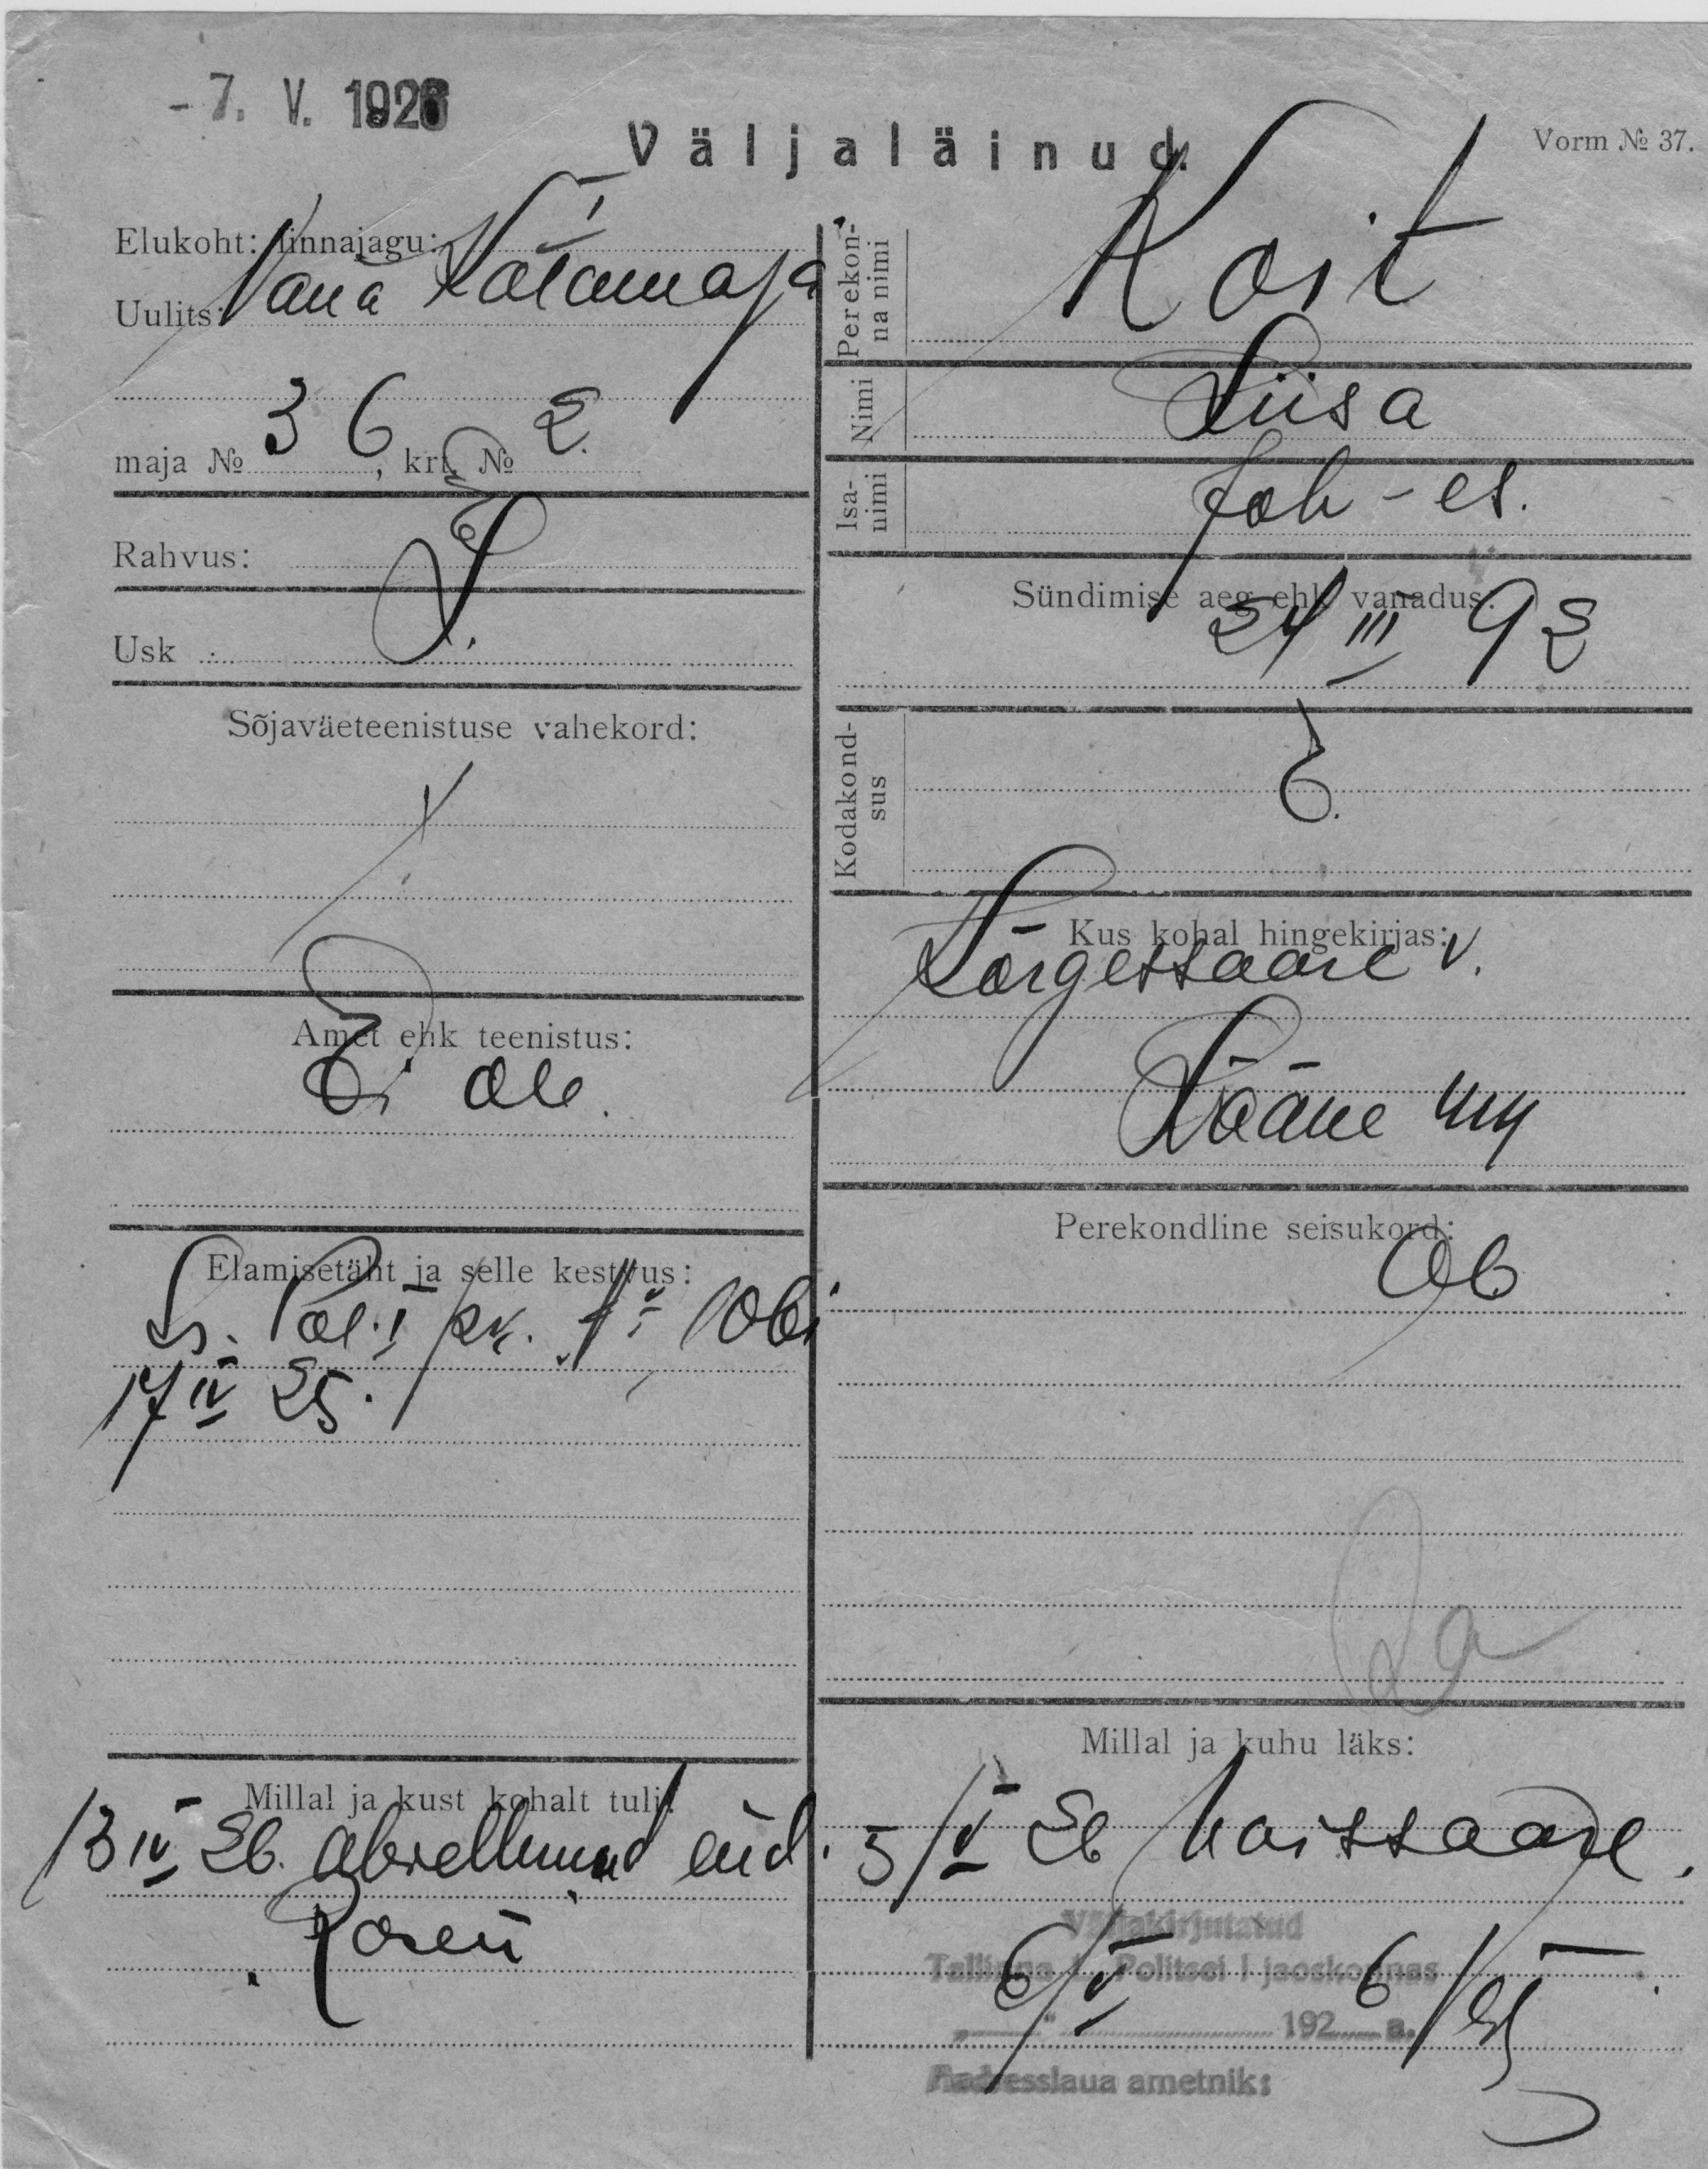 - 7. V. 1926
Väljaläinud.
Vorm № 37.
Elukoht: linnajagu: I
Uulits: Vana Kalamaja
maja № 36, krt. № 2.
Rahvus: E
Usk L.
Sõjaväeteenistuse vahekord:
Amet ehk teenistus:
Ei ole.
Elamisetäht ja selle kestvus:
Tal. I
17 IV 25.
Millal ja kust kohalt tuli:
13 IV 26. abiellunud end.
Rosen
Perekonna nimi Koit
Nimi Liisa
Isanimi Joh-es.
Sündimise aeg ehk vanadus:
24 III 92
Kodakondsus E.
Kus kohal hingekirjas:
Kõrgessaare v.
Lääne my
Perekondline seisukord:
Ab
Millal ja kuhu läks:
5/V 26 Naissaare.
Väljakirjutatud
Tallinna L. Politsei I jaoskonnas
„ 6/V “ 192 6 a.
Aadresslaua ametnik: